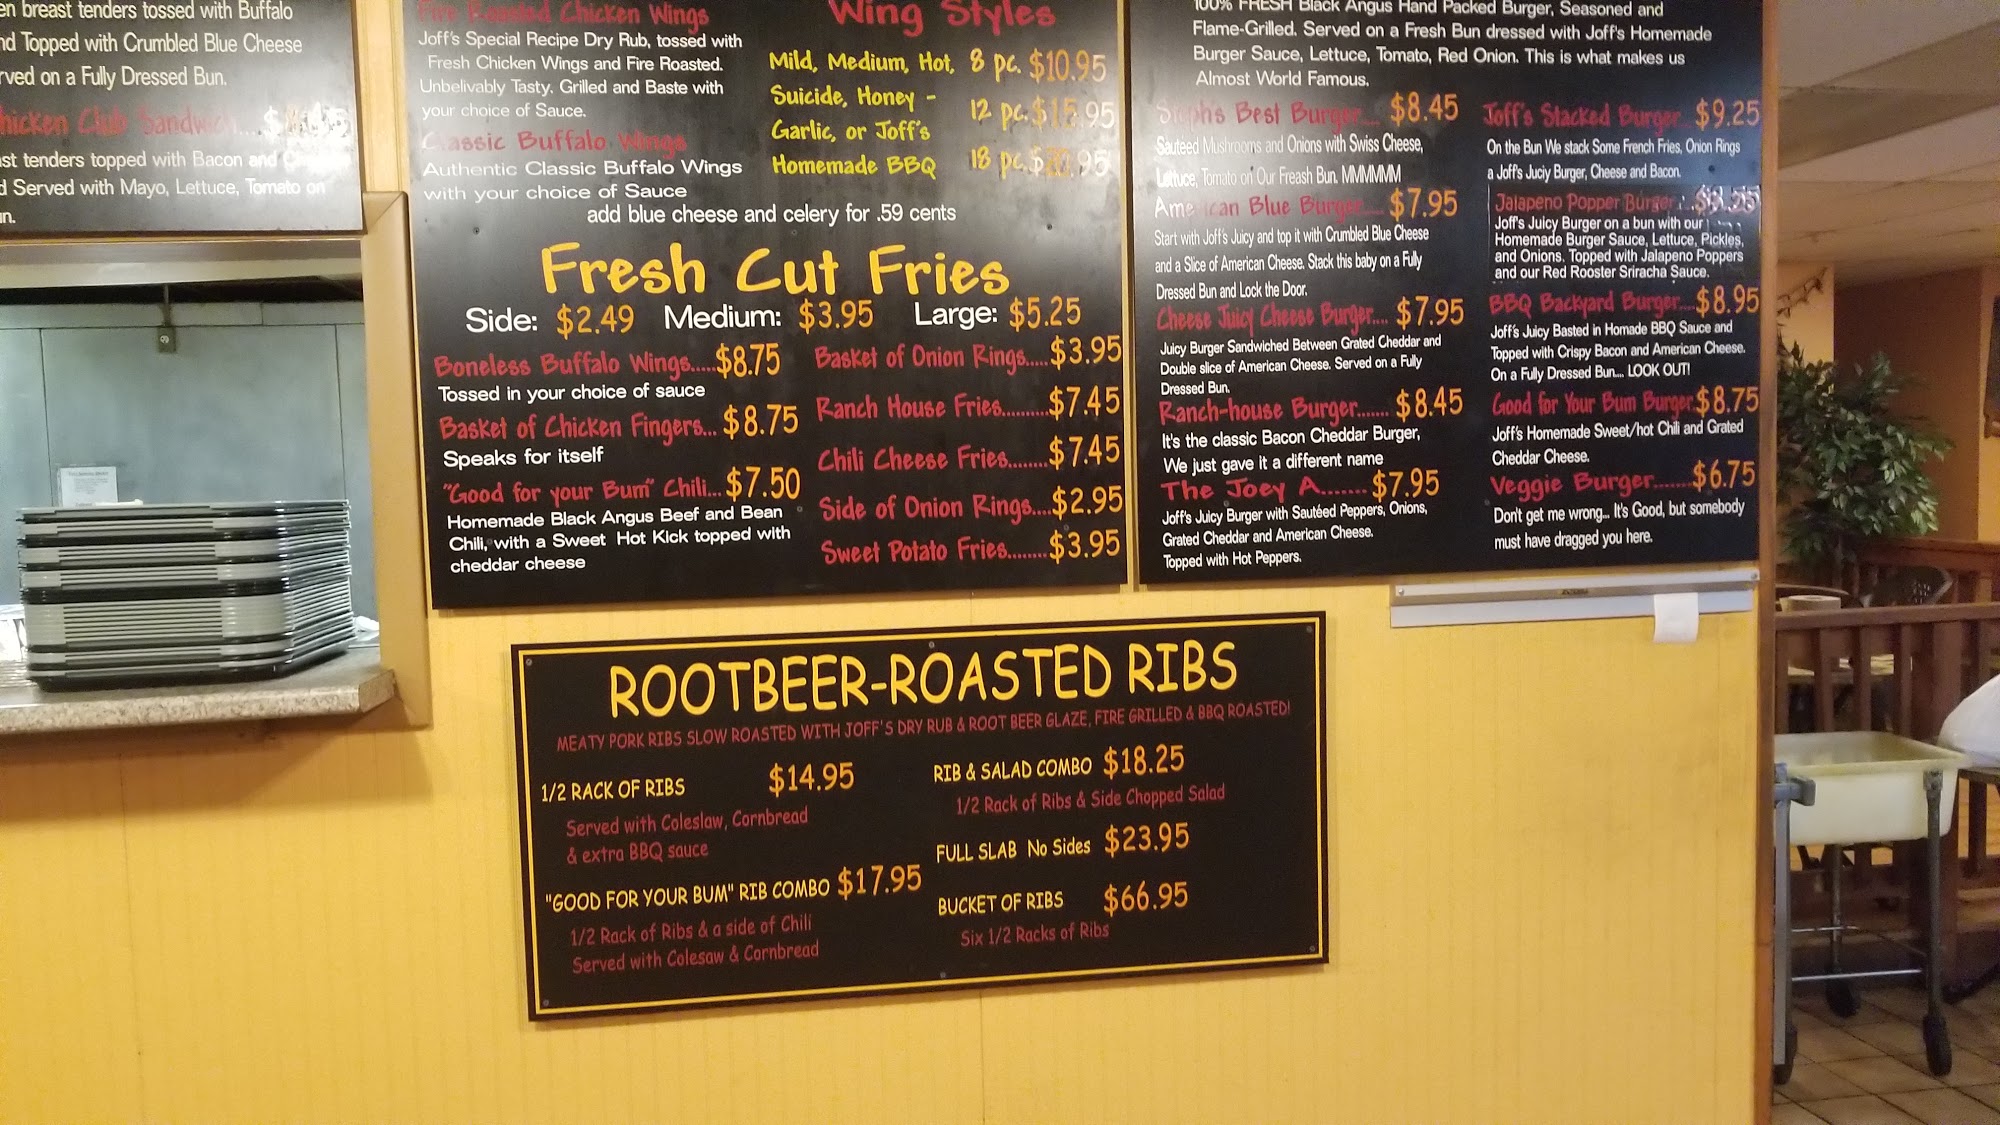 en breast tenders tossed with Buffalo
nd Topped with Crumbled Blue Cheese
rved on a Fully Dressed Bun.
hicken Club Sandwich....
st tenders topped with Bacon and
d Served with Mayo, Lettuce, Tomato on
n.
Fire Roasted Chicken Wings
Joff's Special Recipe Dry Rub, tossed with
Fresh Chicken Wings and Fire Roasted.
Unbelivably Tasty. Grilled and Baste with
your choice of Sauce.
Classic Buffalo Wings
Authentic Classic Buffalo Wings
with your choice of Sauce
Wing Styles
Mild, Medium, Hot,
Suicide, Honey -
Garlic, or Joff's
Homemade BBQ
8 pc. $10.95
12 pc. $15.95
18 pc. $20.95
add blue cheese and celery for .59 cents
Fresh Cut Fries
Side: $2.49 Medium: $3.95 Large: $5.25
Boneless Buffalo Wings.....$8.75
Tossed in your choice of sauce
Basket of Chicken Fingers... $8.75
Speaks for itself
"Good for your Bum" Chili... $7.50
Homemade Black Angus Beef and Bean
Chili, with a Sweet Hot Kick topped with
cheddar cheese
Basket of Onion Rings.....$3.95
Ranch House Fries.........$7.45
Chili Cheese Fries........$7.45
Side of Onion Rings....$2.95
Sweet Potato Fries........$3.95
100% FRESH Black Angus Hand Packed Burger, Seasoned and
Flame-Grilled. Served on a Fresh Bun dressed with Joff's Homemade
Burger Sauce, Lettuce, Tomato, Red Onion. This is what makes us
Almost World Famous.
Best Burger.... $8.45
Sauteed Mushrooms and Onions with Swiss Cheese,
Lettuce, Tomato on Our Freash Bun. MMMMMM
American Blue Burger..... $7.95
Start with Joff's Juicy and top it with Crumbled Blue Cheese
and a Slice of American Cheese. Stack this baby on a Fully
Dressed Bun and Lock the Door.
Cheese Juicy Cheese Burger.... $7.95
Juicy Burger Sandwiched Between Grated Cheddar and
Double slice of American Cheese. Served on a Fully
Dressed Bun.
Ranch-house Burger....... $8.45
It's the classic Bacon Cheddar Burger,
We just gave it a different name
The Joey A....... $7.95
Joff's Juicy Burger with Sautéed Peppers, Onions,
Grated Cheddar and American Cheese.
Topped with Hot Peppers.
Joff's Stacked Burger.. $9.25
On the Bun We stack Some French Fries, Onion Rings
a Joff's Juciy Burger, Cheese and Bacon.
Jalapeno Popper Burger
Joff's Juicy Burger on a bun with our
Homemade Burger Sauce, Lettuce, Pickles,
and Onions. Topped with Jalapeno Poppers
and our Red Rooster Sriracha Sauce.
BBQ Backyard Burger....$8.95
Joff's Juicy Basted in Homade BBQ Sauce and
Topped with Crispy Bacon and American Cheese.
On a Fully Dressed Bun.... LOOK OUT!
Good for Your Bum Burger.$8.75
Joff's Homemade Sweet/hot Chili and Grated
Cheddar Cheese.
Veggie Burger.......$6.75
Don't get me wrong... It's Good, but somebody
must have dragged you here.
ROOTBEER-ROASTED RIBS
MEATY PORK RIBS SLOW ROASTED WITH JOFF'S DRY RUB & ROOT BEER GLAZE, FIRE GRILLED & BBQ ROASTED!
1/2 RACK OF RIBS $14.95
Served with Coleslaw, Cornbread
& extra BBQ sauce
"GOOD FOR YOUR BUM" RIB COMBO $17.95
1/2 Rack of Ribs & a side of Chili
Served with Colesaw & Cornbread
RIB & SALAD COMBO $18.25
1/2 Rack of Ribs & Side Chopped Salad
FULL SLAB No Sides $23.95
BUCKET OF RIBS $66.95
Six 1/2 Racks of Ribs